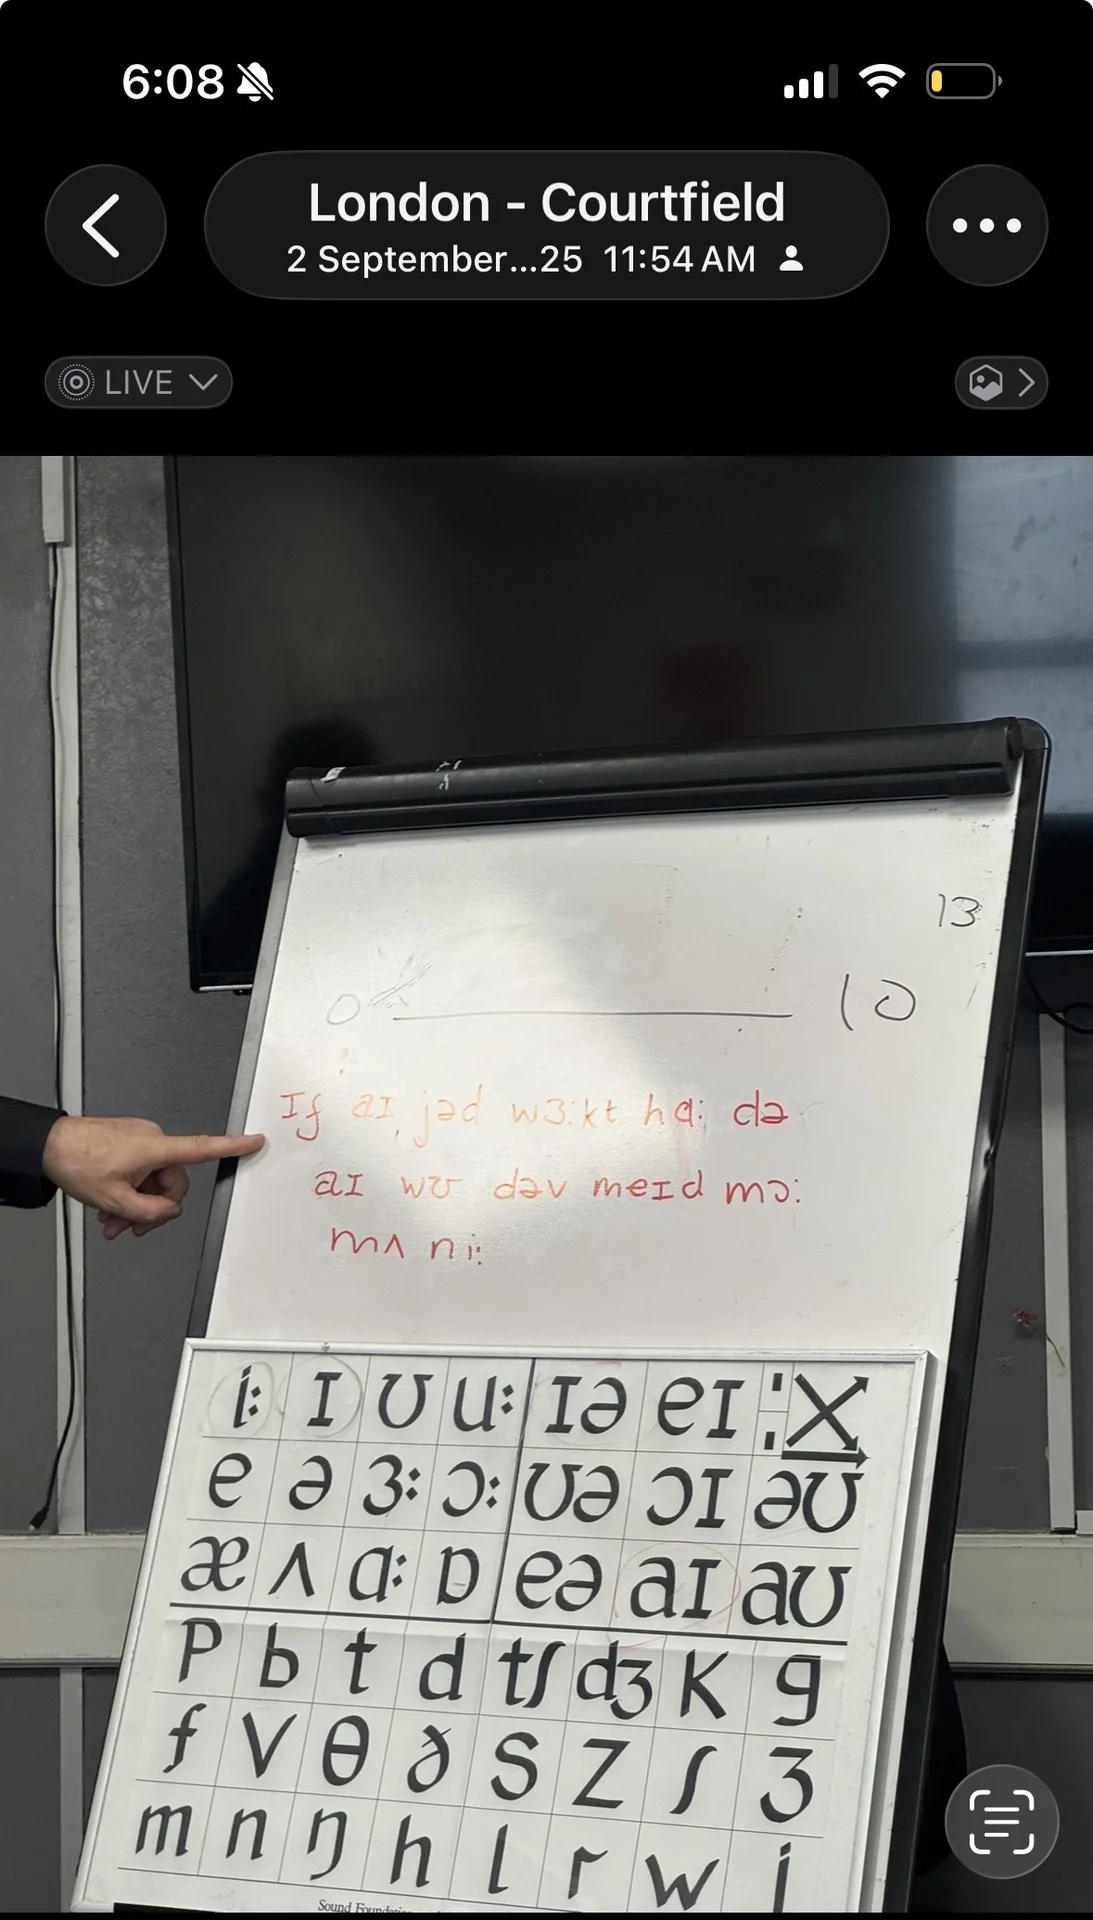 6:08
London - Courtfield
2 September...25 11:54 AM
LIVE
13
0 10
ɪf aɪ jəd wɜ:kt hɑ: də
aɪ wʊ dəv meɪd mɔ:
mʌ ni:
i: ɪ ʊ u: ɪə eɪ
e ə ɜ: ɔ: ʊə ɔɪ əʊ
æ ʌ ɑ: ɒ eə aɪ aʊ
p b t d tʃ dʒ k g
f v θ ð s z ʃ ʒ
m n ŋ h l r w j
Sound